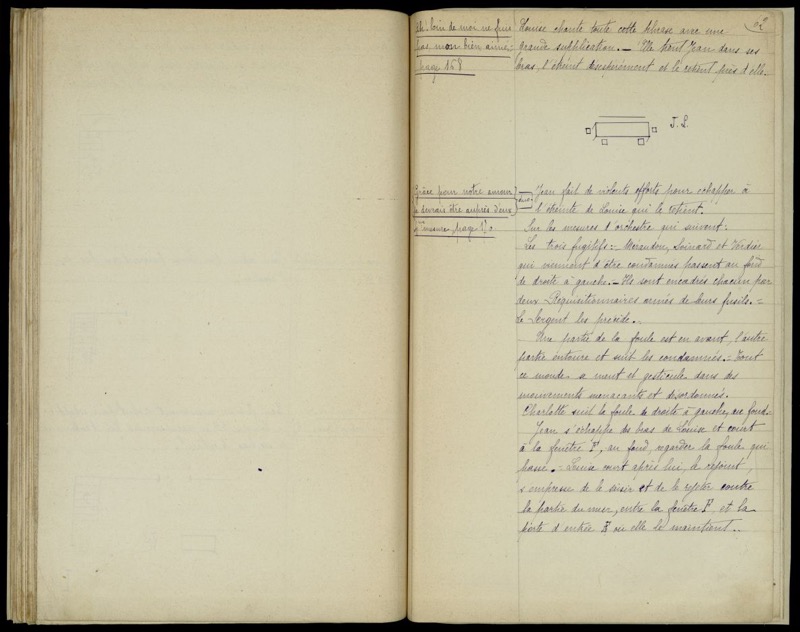 62
Ah! loin de moi ne fuis
pas, mon bien aimé.
page 168
Louise chante toute cette phrase avec une
grande supplication. — Elle tient Jean dans ses
bras, l'étreint désespérément et le retient près d'elle.
J. L.
Grâce pour notre amour
je devrais être auprès d'eux
mesure, page 170
Jean fait de violents efforts pour échapper à
l'étreinte de Louise qui le retient.
Sur les mesures d'orchestre qui suivent:
Les trois fugitifs: — et Verdier
qui viennent d'être condamnés passent au fond
de droite à gauche. — Ils sont encadrés chacun par
deux Réquisitionnaires armés de leurs fusils. =
Le Sergent les précède.
Une partie de la foule est en avant, l'autre
partie entoure et suit les condamnés. = Tout
ce monde a ment et gesticule dans des
mouvements menaçants et désordonnés.
Charlotte suit la foule de droite à gauche, au fond.
Jean s'échappe des bras de Louise et court
à la fenêtre F, au fond, regarder la foule qui
passe. = Louise court après lui, le rejoint,
s'empresse de le saisir et de le contre
la partie du mur, entre la fenêtre F et la
porte d'entrée E où elle le maintient..